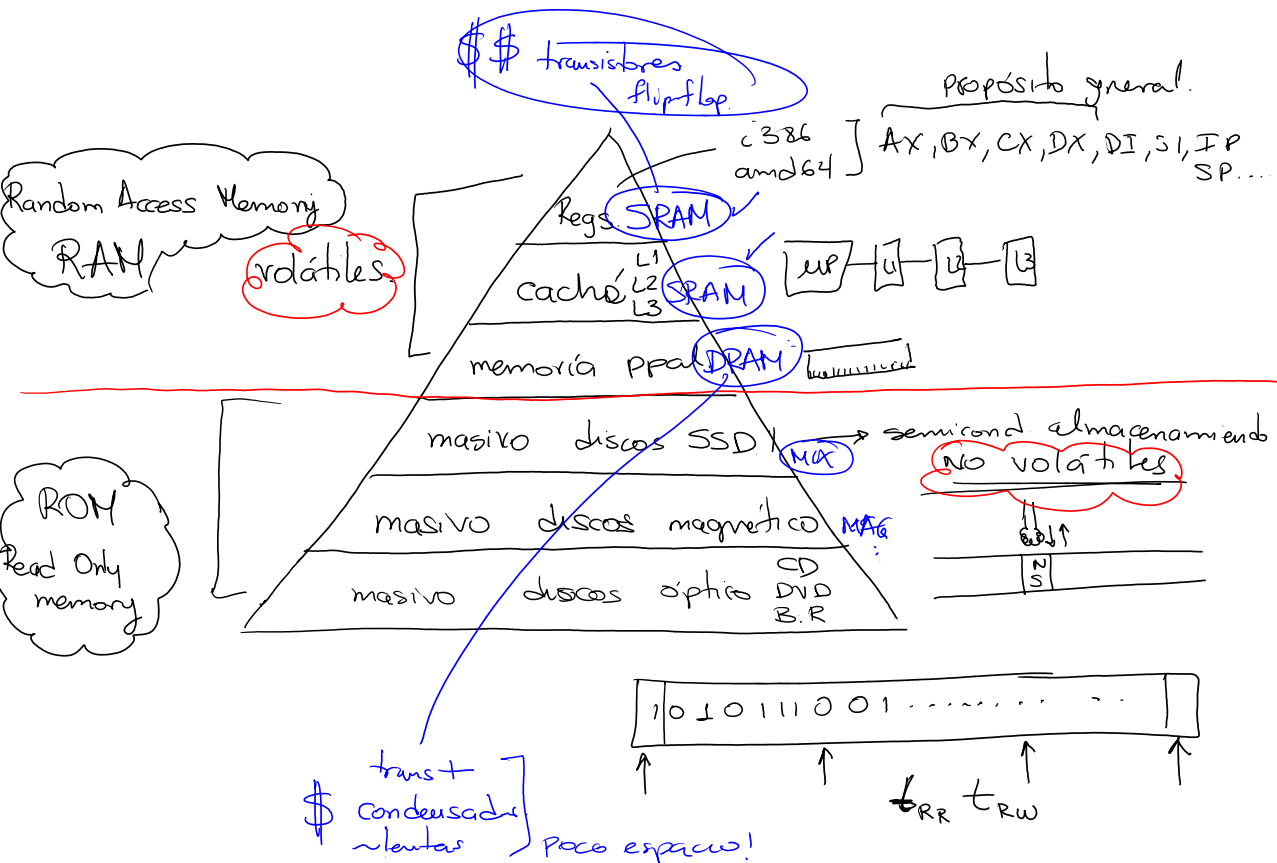 $$ transistores
flip-flop.
propósito general.
i386
amd64
AX, BX, CX, DX, DI, SI, IP
SP....
Random Access Memory
RAM
volátiles.
Regs. SRAM
caché L1
L2
L3
SRAM
μP L1 L2 L3
memoria ppal DRAM
masivo discos SSD
semicond. almacenamiendo
NO volátiles
ROM
Read Only
memory
masivo discos magnético MAG
N
S
masivo discos óptico CD
DVD
B.R
1 0 1 0 1 1 1 0 0 1 ........ ..
tRR tRW
trans +
$ condensador
~lentas
poco espacio!